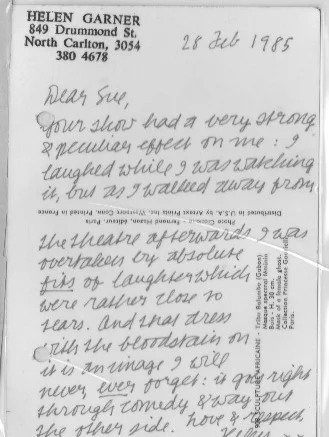 HELEN GARNER
849 Drummond St.
North Carlton, 3054
380 4678
28 Feb 1985
Dear Sue,
Your show had a very strong
& peculiar effect on me: I
laughed while I was watching
it, but as I walked away from
Photo Giacomelli, Editor, Paris
Distributed in U.S.A. by Artext Prints Inc. Westport Conn. Printed in France
the theatre afterwards I was
overtaken by absolute
fits of laughter which
were rather close to
tears. And that dress
with the bloodstain on
it is an image I will
never ever forget: it goes right
through comedy & way out
the other side. Love & respect,
Helen
SCULPTURE AFRICAINE - Tribu Bakota (Gabon)
Bois - H. 30 cm.
Mask of a female ghost.
Paris.